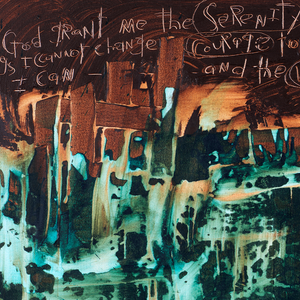 God grant me the SERENITY
gs I cannot change courage to
I can and the